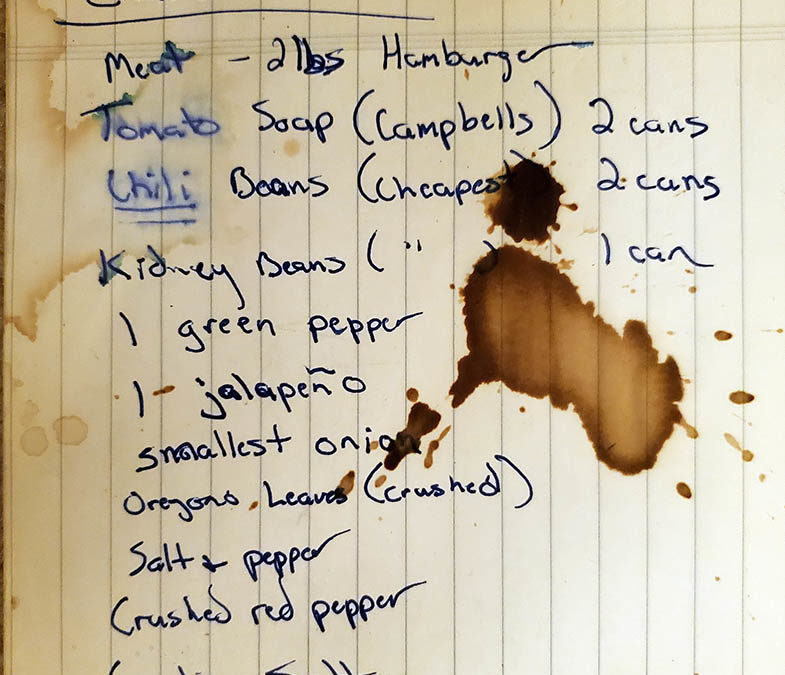 Meat - 2lbs Hamburger
Tomato Soap (Campbells) 2 cans
Chili Beans (Cheapest) 2 cans
Kidney Beans ( " ) 1 can
1 green pepper
1 jalapeño
smallest onion
Oregono Leaves (crushed)
Salt & pepper
Crushed red pepper